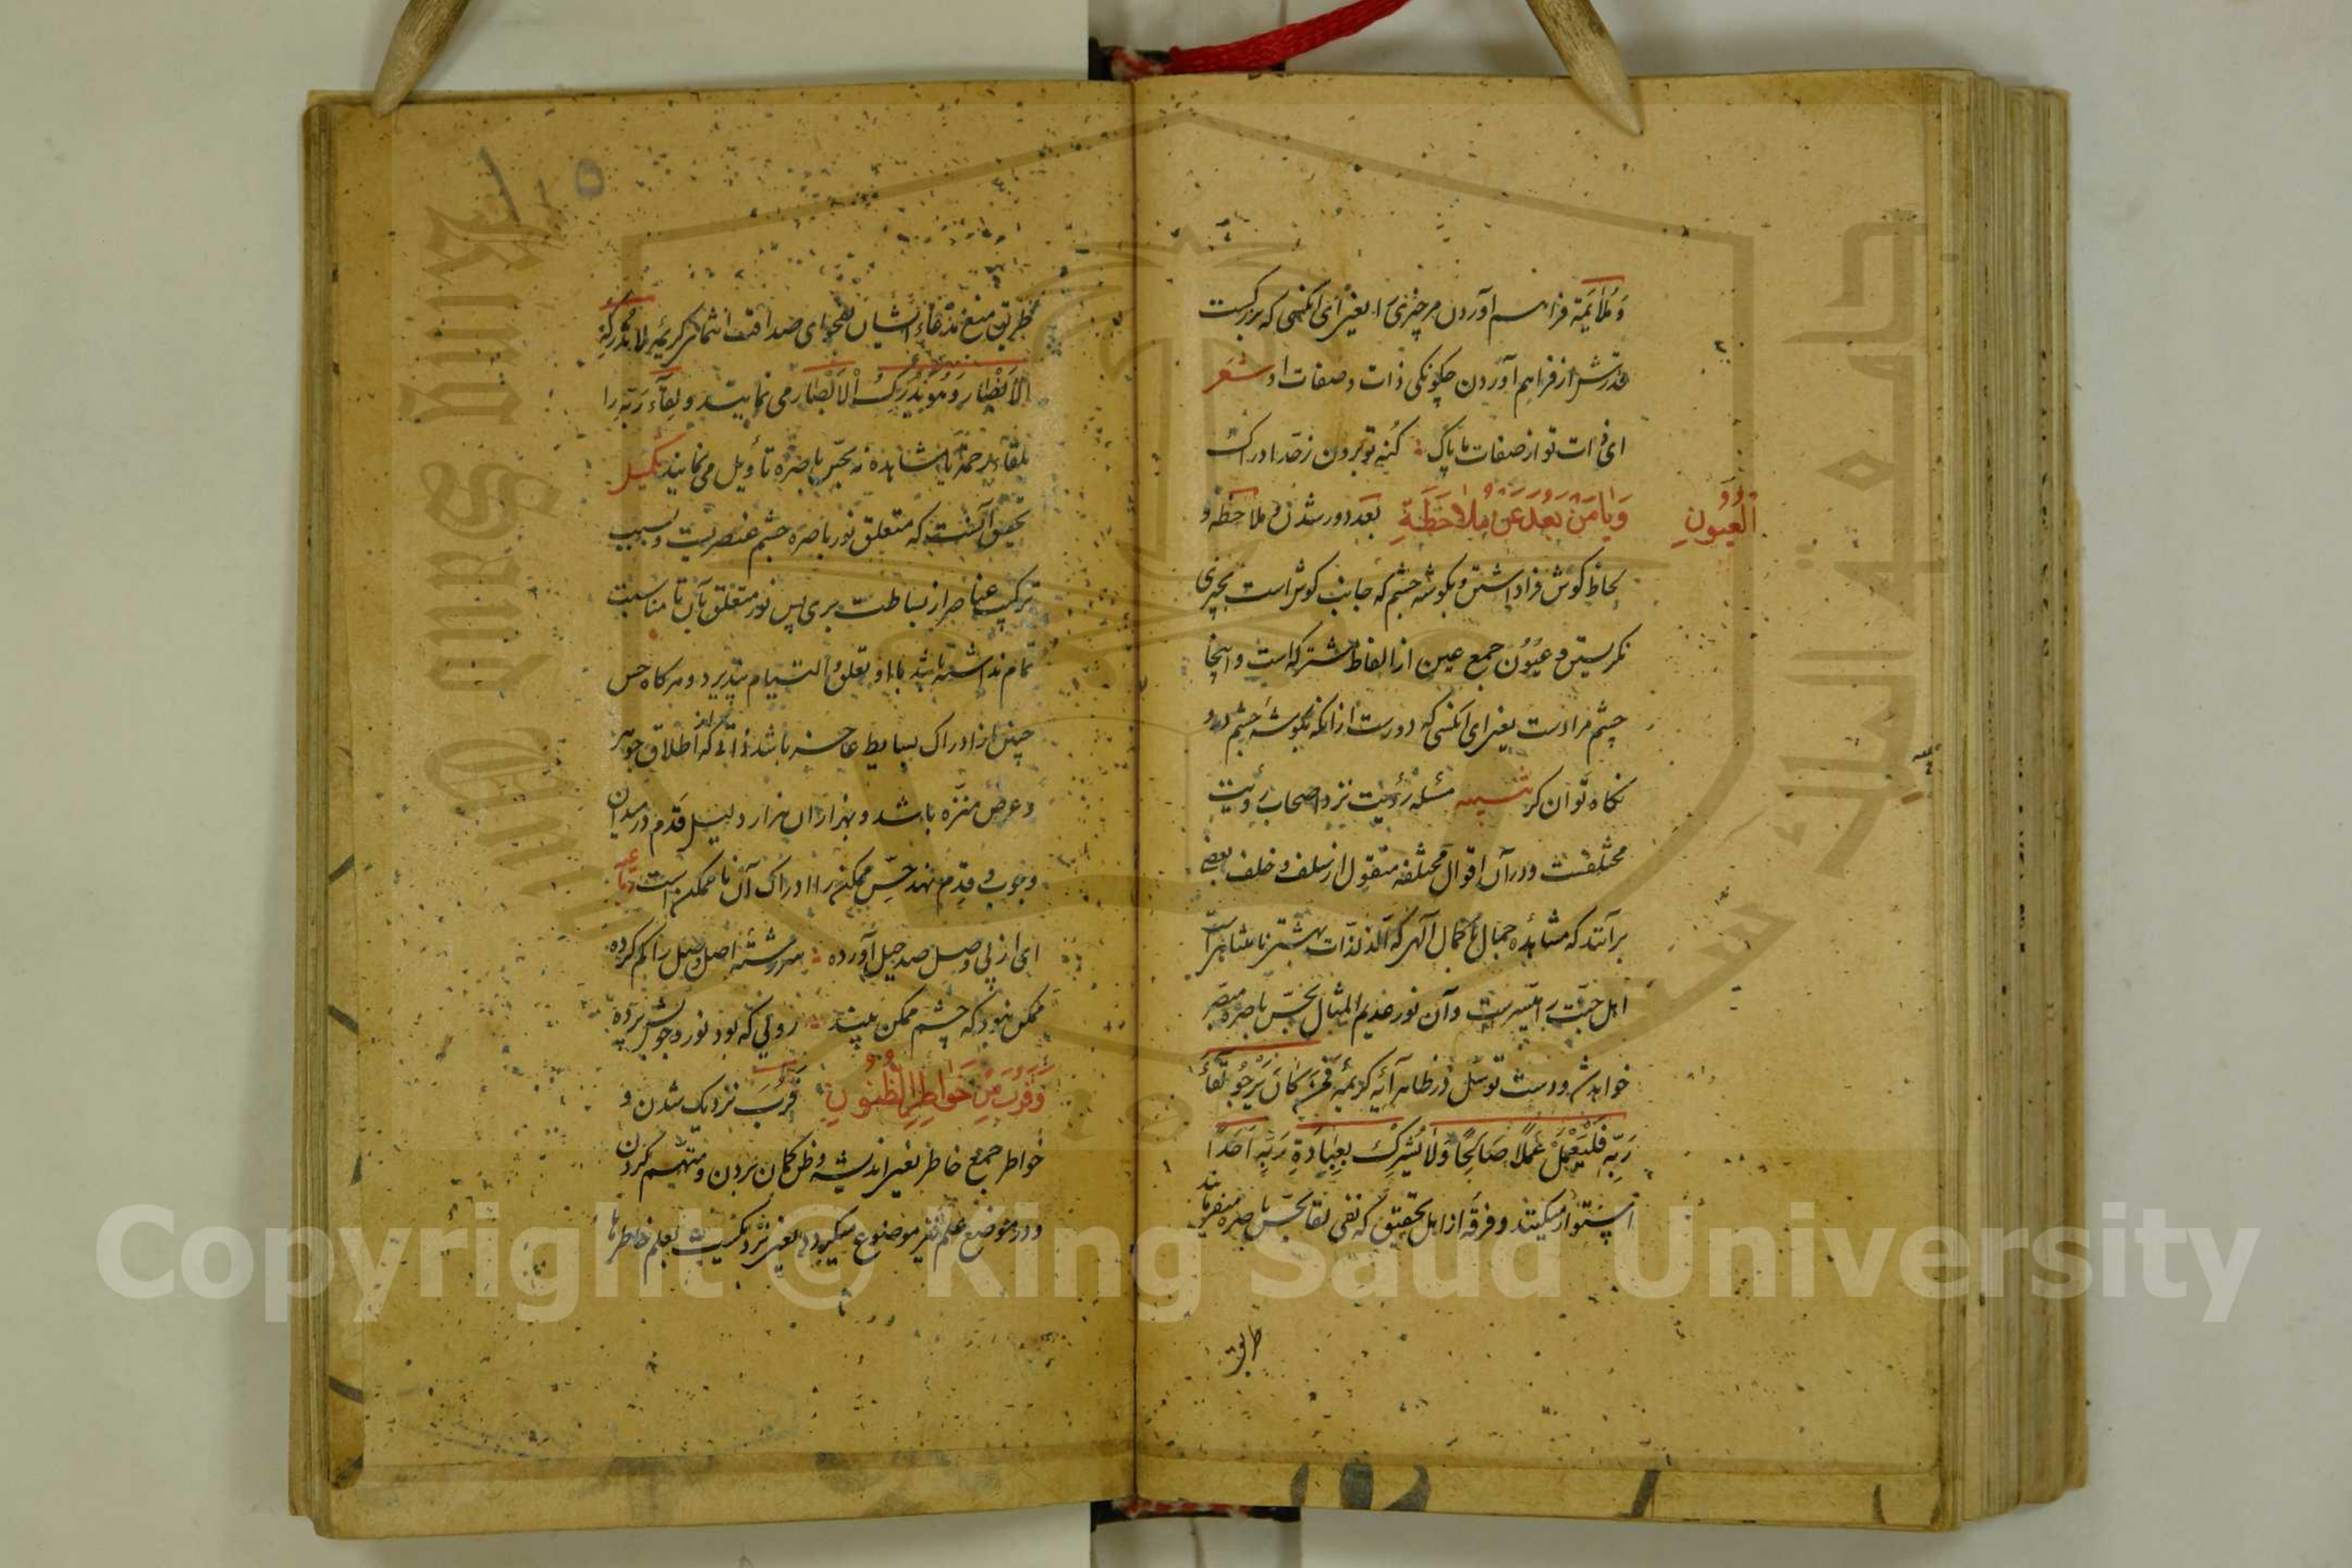 وَ مُلَایَمَة فراهم آوردن مر چیزی را یعنی ای آنکسی که بزرگست
قدرتش از فراهم آوردن چگونکی ذات و صفات او شعر
ای ذات تو از صفات ما پاک ؛ کُنهِ تو برون ز حدّ ادراک
وَیَا مَنْ بَعُدَ عَنْ مُلَاحَظَةِ الْعُیُونِ بَعُد دور شدن و ملاحَظه و
لِحاظ کوش فرا داشتن و بکوشه چشم که جانب کوش است بچیزی
نکریستن و عُیُوْن جمع عین از الفاظ مشترکه است و اینجا
چشم مرادست یعنی ای آنکسی که دورست از آنکه بکوشه چشم درو
نکاه توان کرد تنبیه مسئله رؤیت نزد اصحاب رؤیت
مختلفست و در آن اقوال مختلفه منقول از سلف و خلف بعضی
برآنند که مشاهده جمال با کمال آلهی که الذ لذّات بهشتی
اهل جنّت را میسرست و آن نور عدیم المثال بحسّ باصره مبصر
خواهد شد و دست توسّل در ظاهر آیه کریمه فَمَنْ کَانَ یَرْجُو لِقَاءَ
رَبِّهِ فَلْیَعْمَلْ عَمَلًا صَالِحًا وَلَا یُشْرِكْ بِعِبَادَةِ رَبِّهِ اَحَدًا
استوار میکنند و فرقه از اهل تحقیق که نفی لقا بحسّ باصره میفرمایند
طریق
طریق منع مذهب ایشان بفحوای صداقت انتمای کریمه لا تُدْرِكُهُ
الْاَبْصَار وَ هُوَ یُدْرِكُ الْاَبْصَار می نمایند و لِقَآءَ رَبِّه را
بلقاء رحمة یا مشاهده نه بحسّ باصره تأویل می نمایند تکمیل
تحقیق آنست که متعلق نور باصره چشم عنصریست و بسبب
ترکیب عناصر از بساطت بری پس نور متعلق بآن تا مناسبت
تمام نداشته باشد با او تعلق و التیام نپذیرد و هرکاه حس
چنین از ادراک بسایط عاجز باشد ذاتی که از اطلاق جوهر
و عرض منزّه باشد و بهزاران هزار دلیل قَدَم در میدان
وجوب و قِدم نهد حسّ ممکن را ادراک آن ناممکن است رباعی
ای از پی وصل صد حیل آورده ؛ سررشته اصل وصل را کم کرده
ممکن نبود که چشم ممکن بیند ؛ رویی که بود نور وجوبش پرده
وَقَرُبَ مِنْ خَوَاطِرِ الظُّنُوْنِ قَرُبَ نزدیک شدن و
خواطر جمع خاطر یعنی اندیشه و ظن کمان بردن و متهم کردن
و در موضع علم نیز موضوع میکردد یعنی نزدیکست بعلم خاطرها